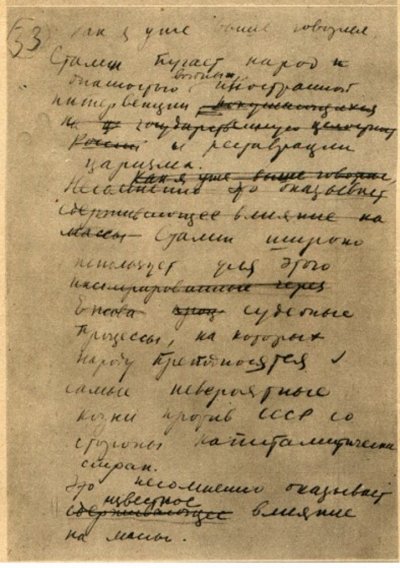 33
Как я уже выше говорил,
Сталин пугает народ
опасностью войны, иностранной
интервенции покушающихся
на государственную целостность
России и реставрации
царизма.
Как я уже выше говорил,
Несомненно это оказывает
сдерживающее влияние на
массы Сталин широко
использует для этого
инсценированные через
Ежова проц судебные
процессы, на которых
народу преподносятся
самые невероятные
козни против СССР со
стороны капиталистическ
стран.
Это несомненно оказывает
известное
сдерживающее влияние
на массы.